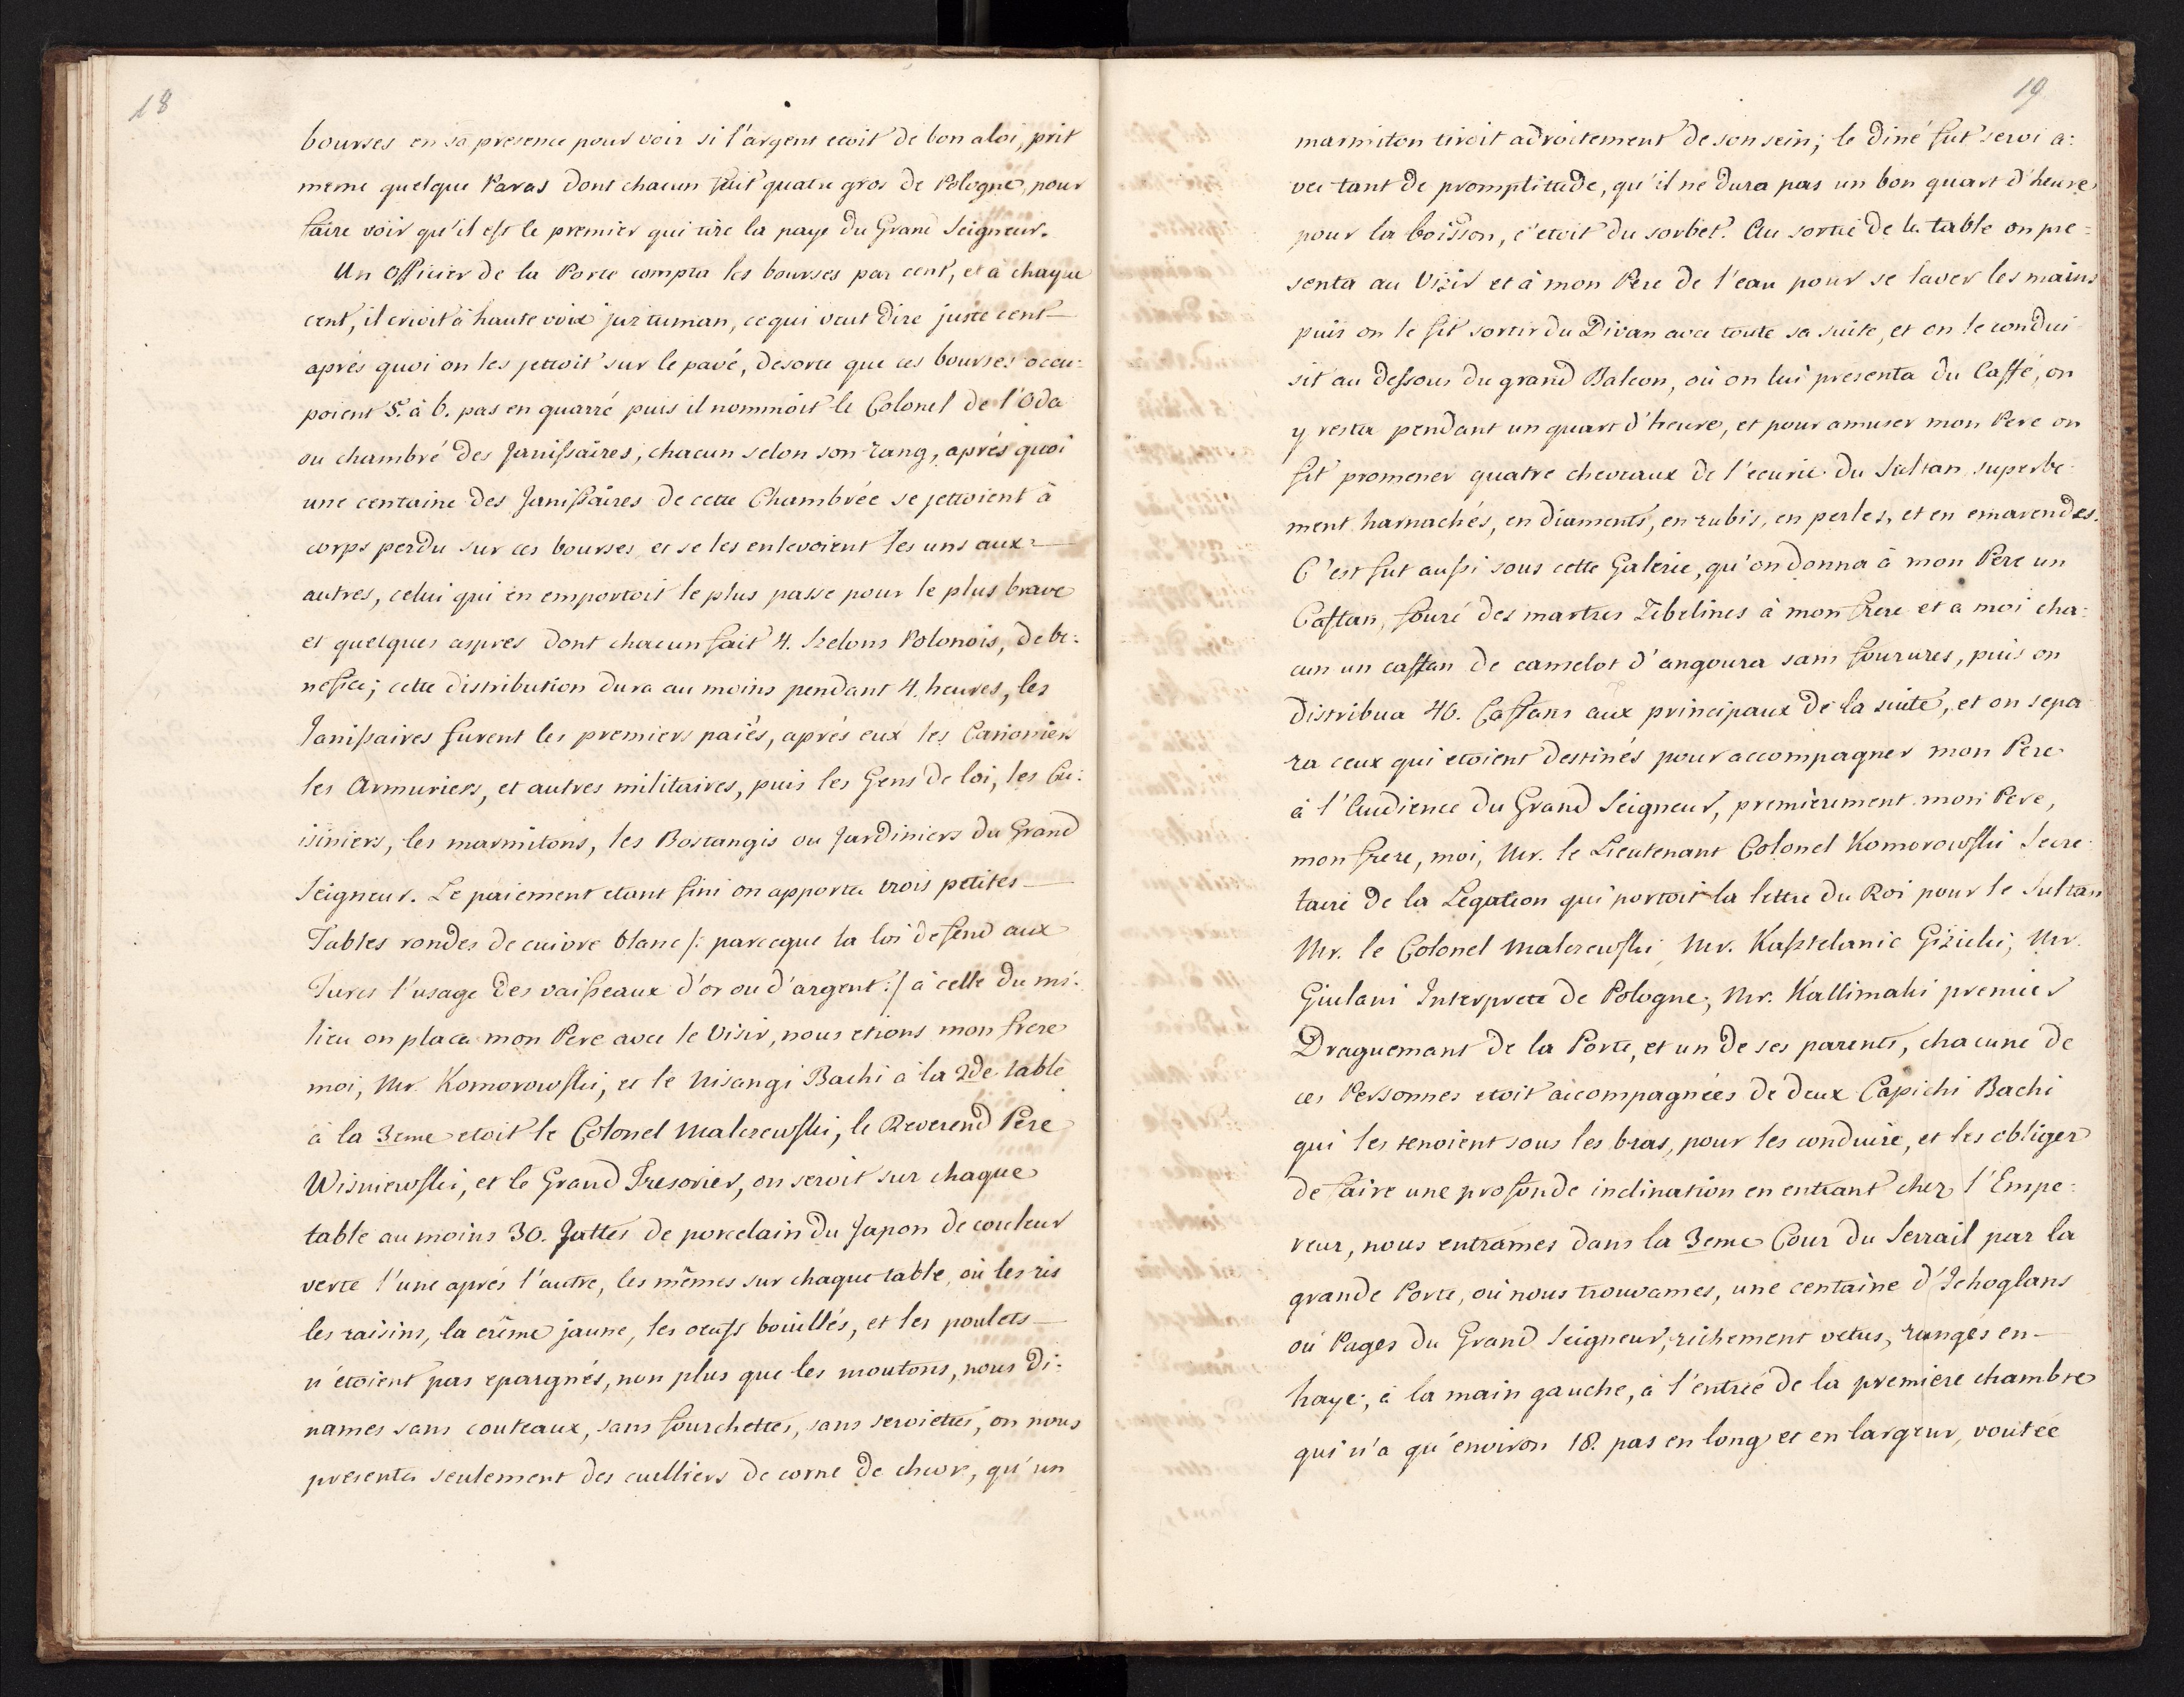 18
bourses en sa presence pour voir si l'argent etoit de bon aloi, prit
meme quelque Paras dont chacun fait quatre gros de Pologne, pour
faire voir qu'il est le premier qui tire la paye du Grand Seigneur.
Un Officier de la Porte compta les bourses par cent, et à chaque
cent, il crioit à haute voix juz tuman, ce qui veut dire juste cent
aprés quoi on les jettoit sur le pavé, desorte que ces bourses occu:
poient 5. à 6. pas en quarré puis il nommoit le Colonel de l'Oda
ou chambré des Janissaires, chacun selon son rang, aprés quoi
une centaine des Janissaires de cette Chambrée se jettoient à
corps perdu sur ces bourses et se les enlevoient les uns aux
autres, celui qui en emportoit le plus passe pour le plus brave
et quelques aspres dont chacun fait 4. Szelons Polonois, de be:
nefice; cette distribution dura au moins pendant 4. heures, les
Janissaires furent les premiers paiés, aprés eux les Canoniers
les Armuriers, et autres militaires, puis les Gens de loi, les Cu:
isiniers, les marmitons, les Bostangis ou Jardiniers du Grand
Seigneur. Le paiement etant fini on apporta trois petites
Tables rondes de cuivre blanc /: parceque la loi defend aux
Turcs l'usage des vaisseaux d'or ou d'argent :/ à celle du mi:
lieu on placa mon Pere avec le Visir, nous etions mon frere
moi, Mr. Komorowski, et le Nisangi Bachi a la 2de table
à la 3eme etoit le Colonel Malczewski, le Reverend Pere
Wisniewski, et le Grand Tresorier, on servit sur chaque
table au moins 30. Jattes de porcelain du Japon de couleur
verte l'une aprés l'autre, les mêmes sur chaque table, où les ris
les raisins, la crême jaune, les oeufs bouillés, et les poulets
n'étoient pas epargnés, non plus que les moutons, nous di:
names sans couteaux, sans fourchettes, sans serviettes, on nous
presenta seulement des cuilliers de corne de chevr, qu'un
19
marmiton tiroit adroitement de son sein; le diné fut servi a:
vec tant de promptitude, qu'il ne dura pas un bon quart d'heure
pour la boisson, c'etoit du sorbet. Au sortie de la table on pre=
senta au Vizir et à mon Pere de l'eau pour se laver les mains
puis on le fit sortir du Divan avec toute sa suite, et on le condui
sit au dessous du grand Balcon, où on lui presenta du Caffé, on
y resta pendant un quart d'heure, et pour amuser mon Pere on
fit promener quatre chevaux de l'ecurie du Sultan superbe:
ment harnachés, en diaments, en rubis, en perles, et en emarendes.
C'est fut aussi sous cette Galerie, qu'on donna à mon Pere un
Caftan, fouré des martres Zibelines à mon frere et a moi cha:
cun un caftan de camelot d'angoura sans fourures, puis on
distribua 40. Caftans aux principaux de la suite, et on sepa
ra ceux qui etoient destinés pour accompagner mon Pere
à l'Audience du Grand Seigneur, premièrement mon Pere,
mon frere, moi, Mr. le Lieutenant Colonel Komorowski Secre:
taire de la Legation qui portoit la lettre du Roi pour le Sultan
Mr. le Colonel Malczewski, Mr. Kasztelanic Gizicki, Mr.
Giulani Interprete de Pologne; Mr. Kallimaki premier
Draguemant de la Porte, et un de ses parents, chacune de
ces Personnes etoit accompagnées de deux Capichi Bachi
qui les tenoient sous les bras, pour les conduire, et les obliger
de faire une profonde inclination en entrant chez l'Empe:
reur, nous entrâmes dans la 3eme Cour du Serrail par la
grande Porte, où nous trouvames, une centaine d'Ichoglans
ou Pages du Grand Seigneur, richement vetus, rangés en
haye; à la main gauche, à l'entrée de la premiere chambre
qui n'a qu'environ 18. pas en long et en largeur, voutée